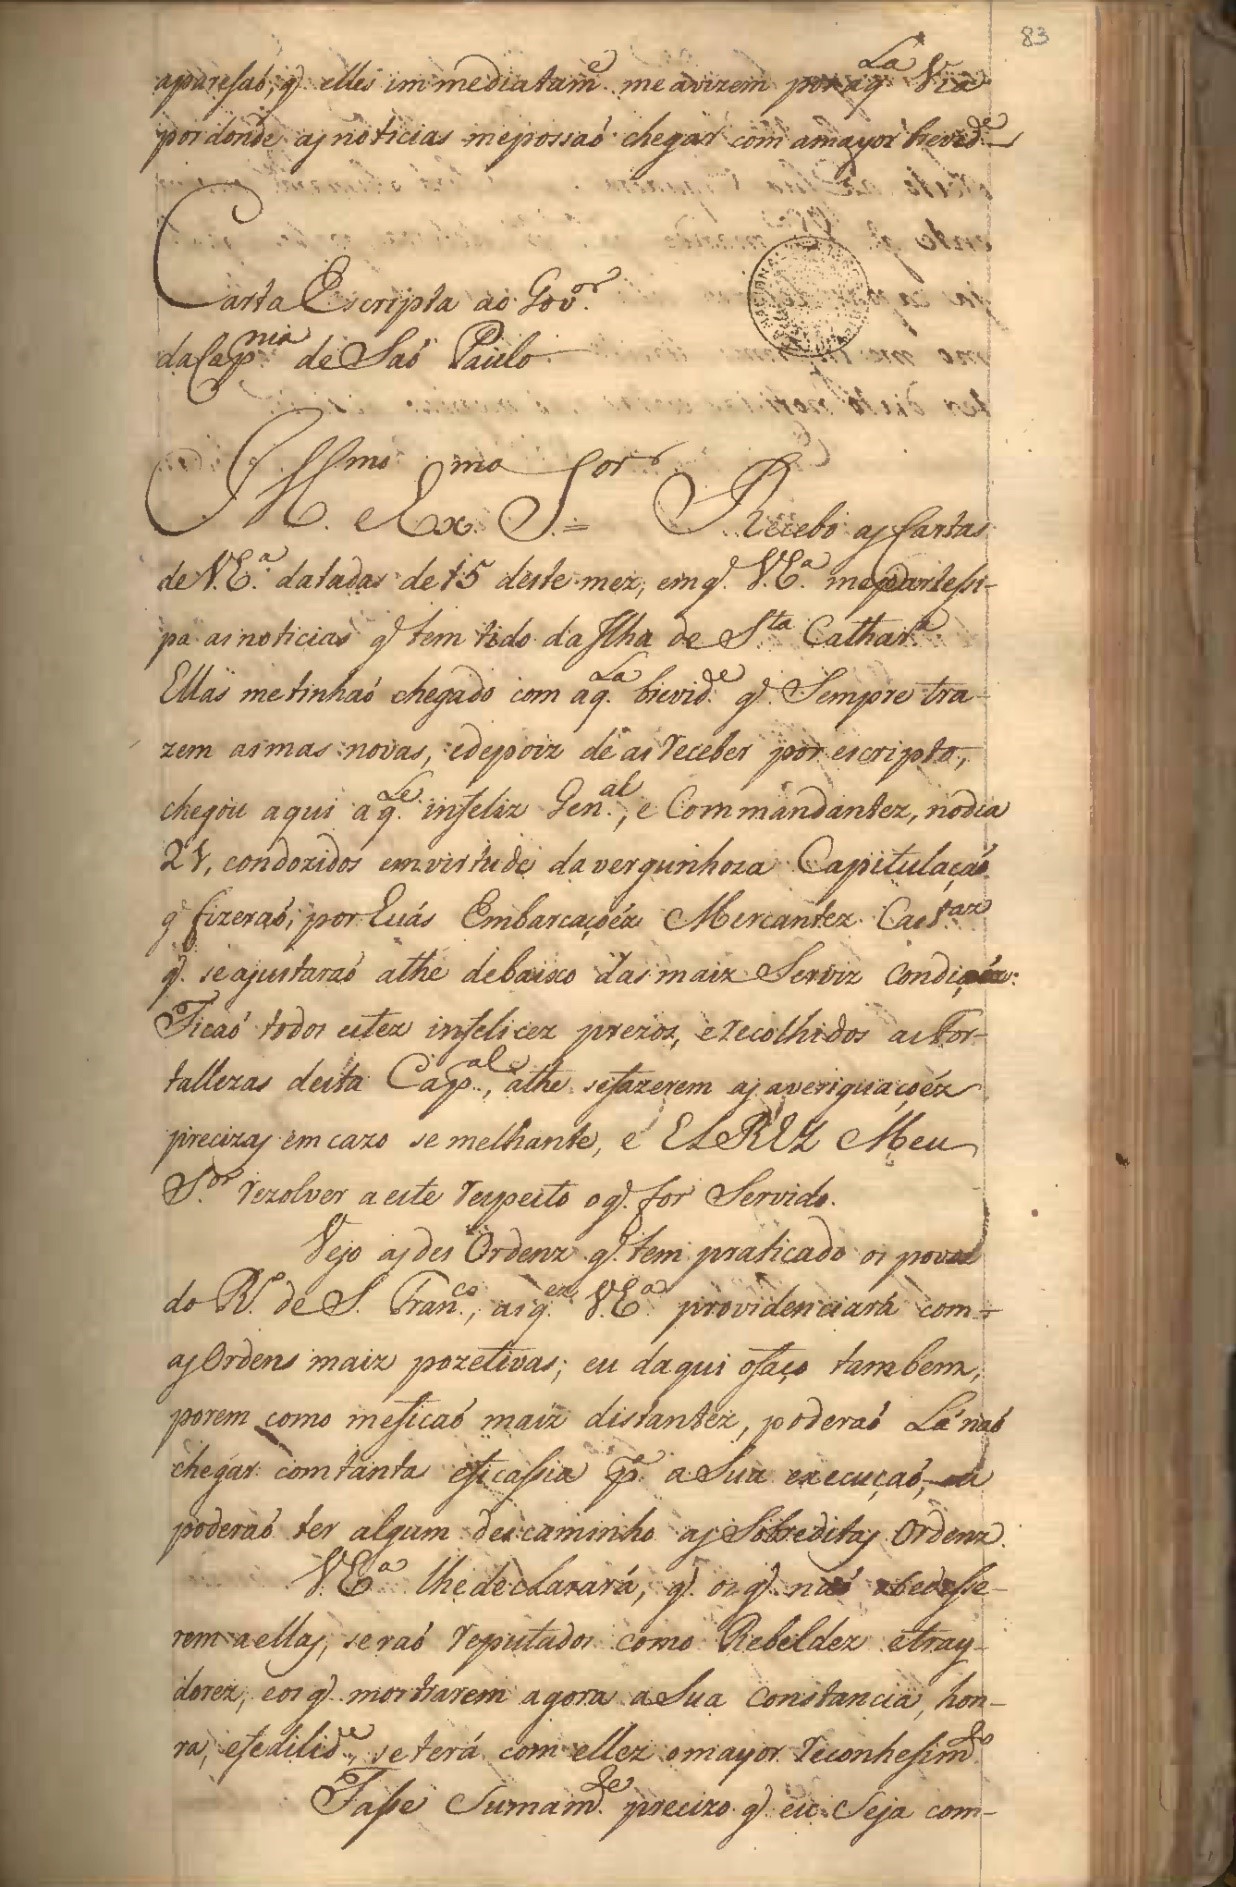 83
apuresaó, q̃ elles immediatamᵉ me avizem por aqˡᵃ Via
por donde as noticias me possaó chegar com a mayor brevidᵉ
Carta Escripta ao Govᵒʳ
da Capⁿⁱᵃ de Saó Paulo
Illᵐᵒ e Exᵐᵒ Sᵒʳ = Recebo as Cartas
de V. Eᵃ datadas de 15 deste mez, em q̃ V. Eᵃ me partessi-
pa as noticias q̃ tem tido da Ilha de Sᵗᵃ Catharᵃ
Ellas me tinhaó chegado com aqˡᵃ brevidᵉ q̃ Sempre tra-
zem as mas novas, e depoiz de as receber por escripto,
chegou aqui aqˡᵉ infeliz Genᵃˡ, e Commandantez, no dia
21, condozidos em virtude da vergunhoza Capitulaçaó
q̃ fizeraó, por suás Embarcaçoéz Mercantez Castᵃˢ
q̃ se ajustaraó athe debaixo das maiz Serviz condiçoéz:
Ficaó todos estez infelicez prezos, e recolhidos as For-
tallezas desta Capᵃˡ, athe se fazerem as averiguaçoéz
precizas em cazo semelhante, e ELREY Meu
Sᵒʳ rezolver a este respeito o q̃ for Servido.
Vejo as des Ordenz q̃ tem praticado os povos
do Rº de S. Franᶜᵒ, as qᵉˢ V. Eᵃ providenciará com
as Ordens maiz pozetivas; eu daqui o faço tambem,
porem como me ficaó maiz distantez, poderaó Lá naó
chegar com tanta eficassia pᵃ a Sua execuçaó, ou
poderaó ter algum descaminho as Sobreditas Ordenz.
V. Eᵃ lhe declarará, q̃ os q̃ naó obedesse-
rem a ellas, seraó reputados como Rebeldez e tray-
dorez, e os q̃ mostrarem agora a Sua constancia, hon-
ra, e fedilidᵉ, se terá com ellez o mayor reconhesimᵗᵒ
Fasse Sumamᵗᵉ precizo q̃ eu Seja com-